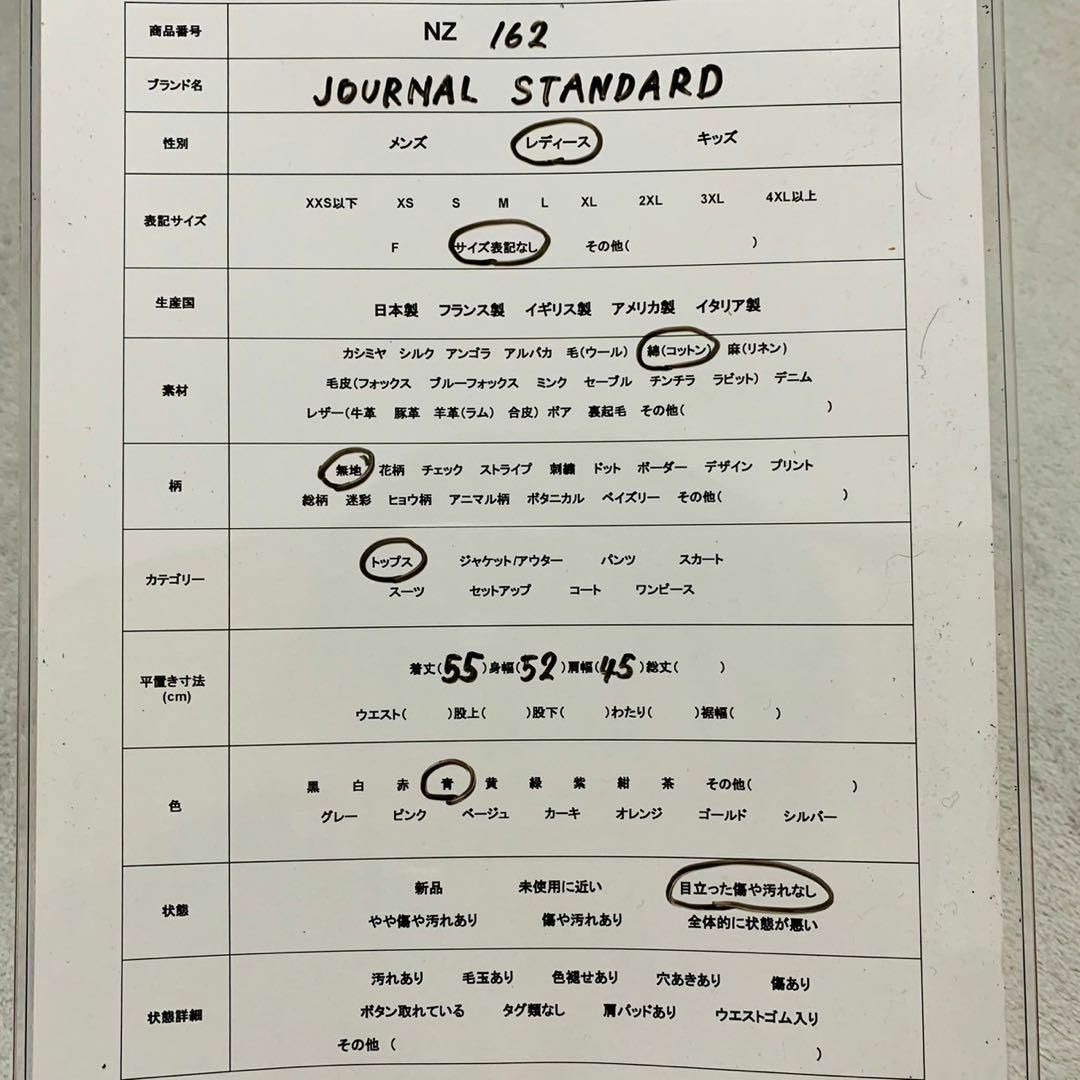 商品番号 NZ 162
ブランド名 JOURNAL STANDARD
性別 メンズ レディース キッズ
表記サイズ
XXS以下 XS S M L XL 2XL 3XL 4XL以上
F サイズ表記なし その他( )
生産国 日本製 フランス製 イギリス製 アメリカ製 イタリア製
素材
カシミヤ シルク アンゴラ アルパカ 毛(ウール) 綿(コットン) 麻(リネン)
毛皮(フォックス ブルーフォックス ミンク セーブル チンチラ ラビット) デニム
レザー(牛革 豚革 羊革(ラム) 合皮) ボア 裏起毛 その他( )
柄
無地 花柄 チェック ストライプ 刺繍 ドット ボーダー デザイン プリント
総柄 迷彩 ヒョウ柄 アニマル柄 ボタニカル ペイズリー その他( )
カテゴリー
トップス ジャケット/アウター パンツ スカート
スーツ セットアップ コート ワンピース
平置き寸法
(cm)
着丈(55)身幅(52)肩幅(45)総丈( )
ウエスト( )股上( )股下( )わたり( )裾幅( )
色
黒 白 赤 青 黄 緑 紫 紺 茶 その他( )
グレー ピンク ベージュ カーキ オレンジ ゴールド シルバー
状態
新品 未使用に近い 目立った傷や汚れなし
やや傷や汚れあり 傷や汚れあり 全体的に状態が悪い
状態詳細
汚れあり 毛玉あり 色褪せあり 穴あきあり 傷あり
ボタン取れている タグ類なし 肩パッドあり ウエストゴム入り
その他 ( )